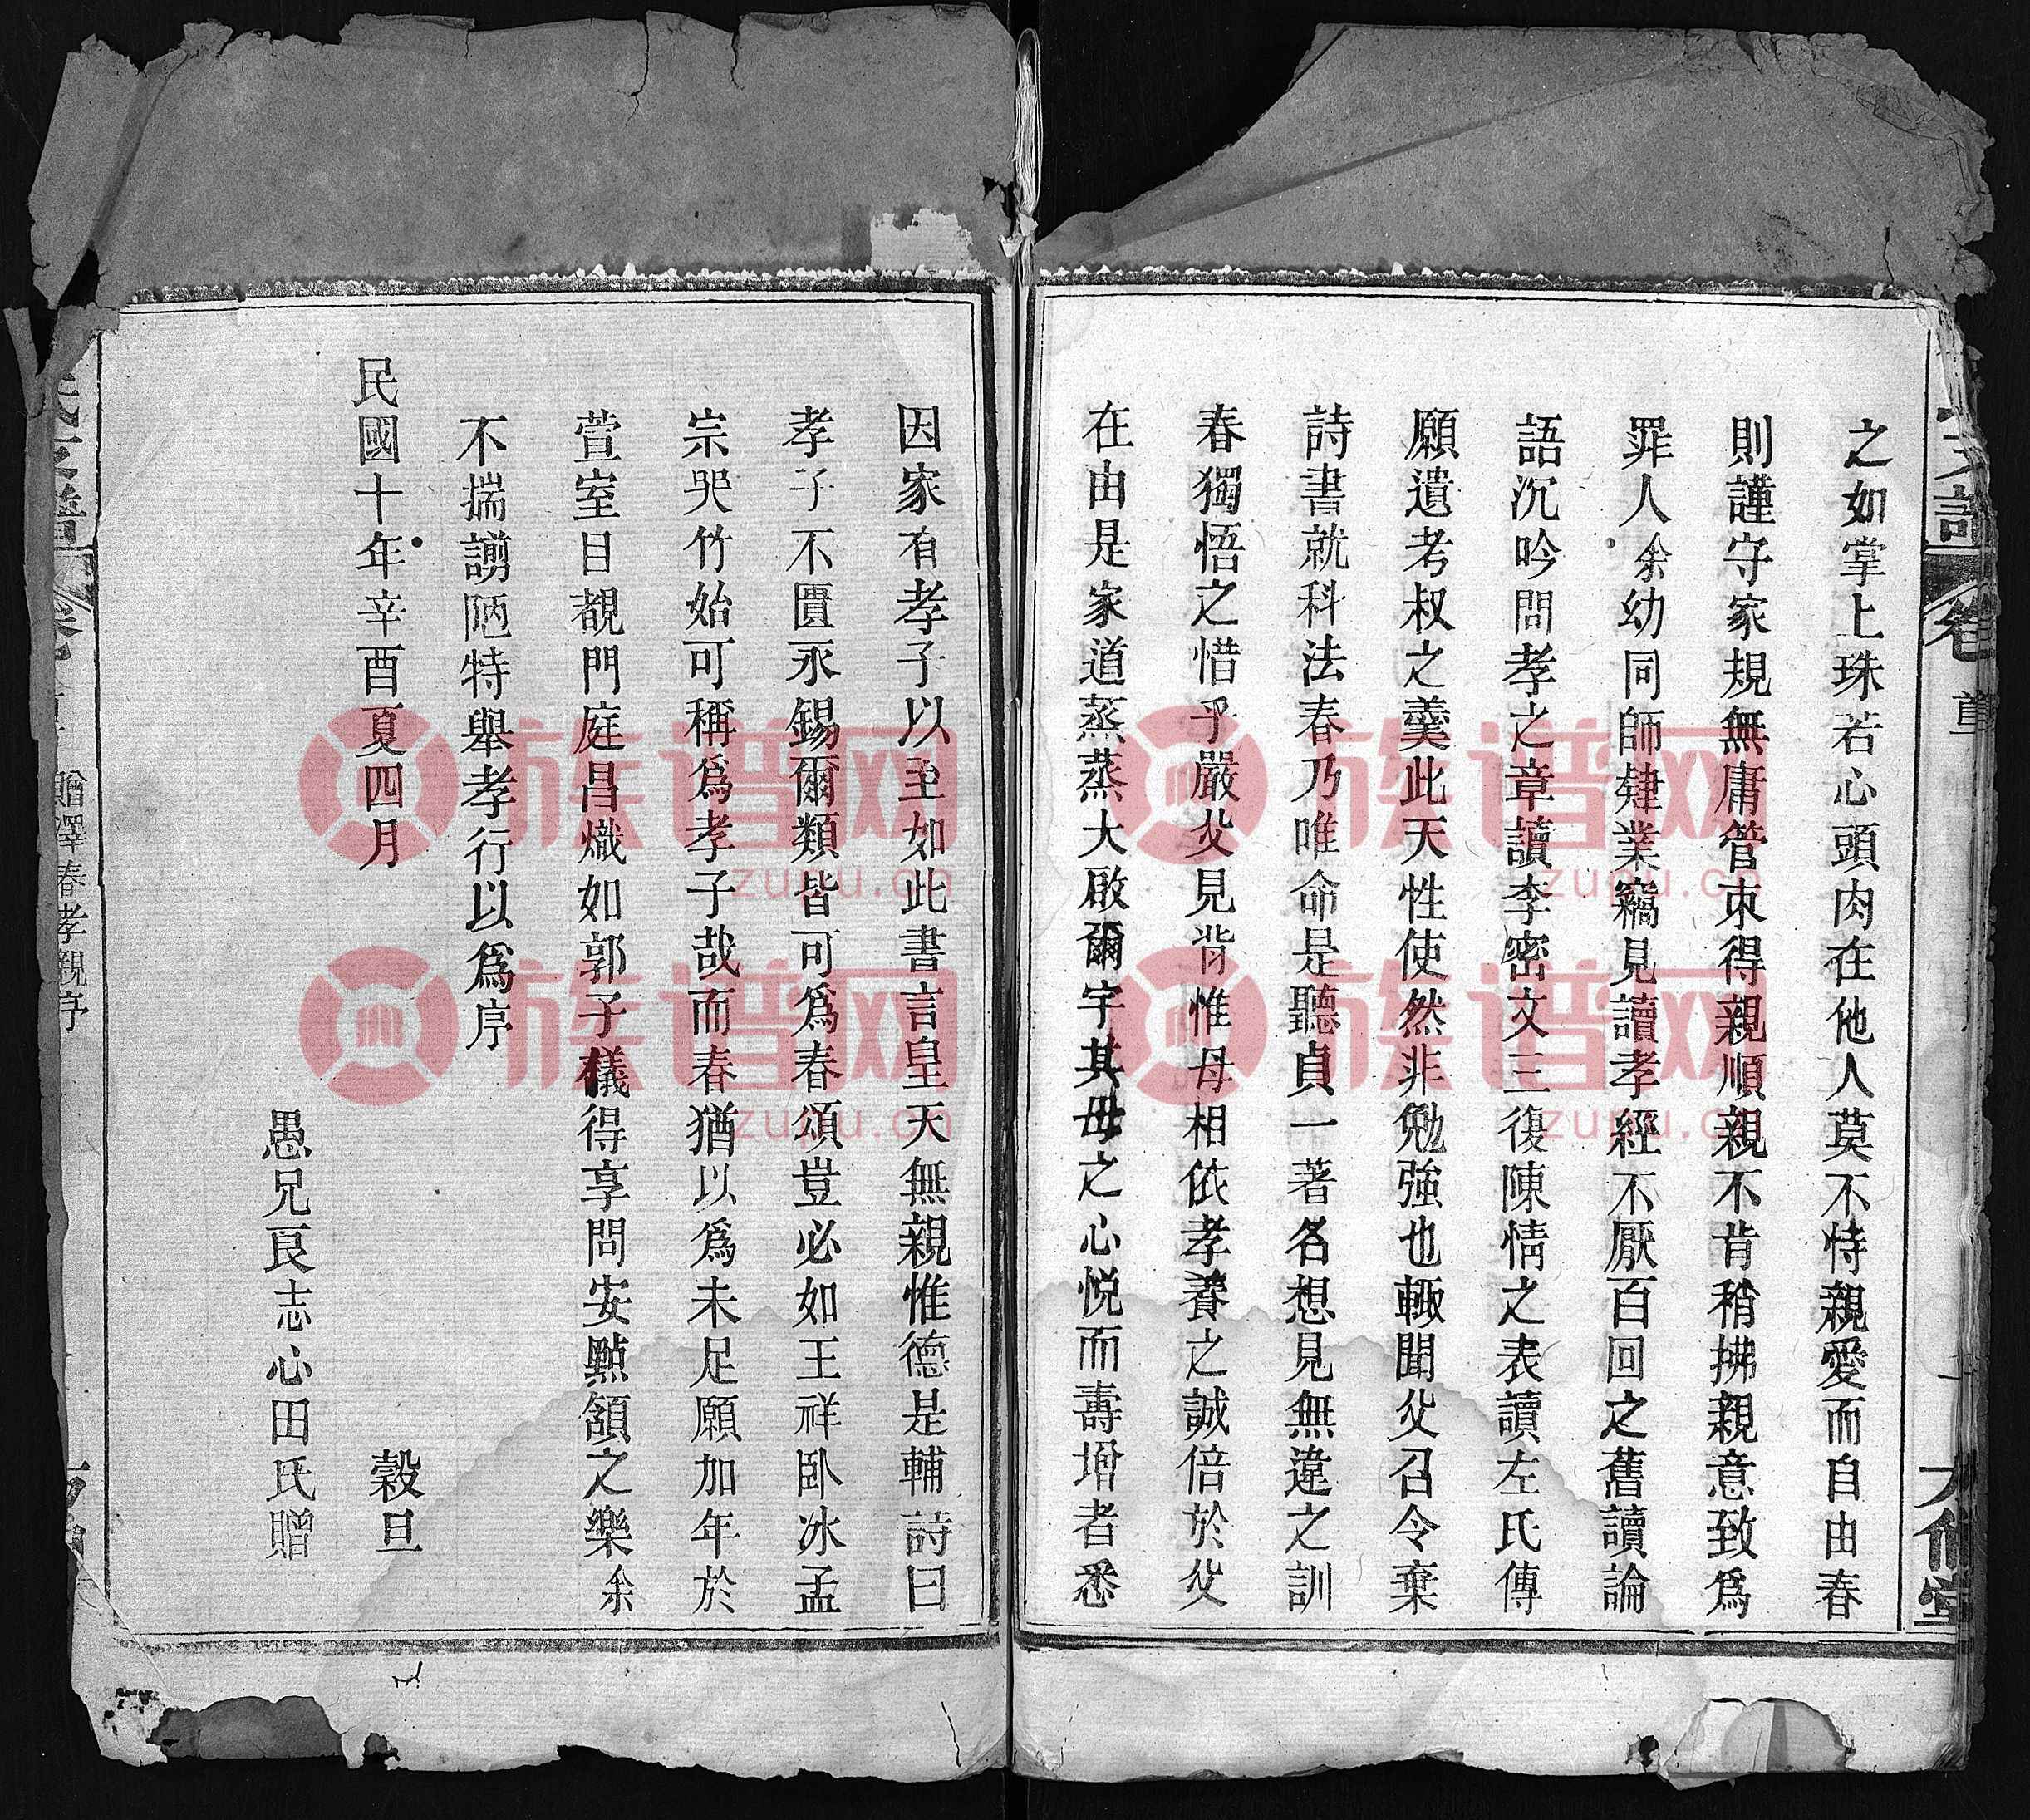 之如掌上珠若心頭肉在他人莫不恃親愛而自由春
則謹守家規無庸管束得親順親不肯稍拂親意致爲
罪人余幼同師肄業竊見讀孝經不厭百回之舊讀論
語沉吟問孝之章讀李密文三復陳情之表讀左氏傳
願遺考叔之羹此天性使然非勉強也輒聞父召令棄
詩書就科法春乃唯命是聽貞一著名想見無違之訓
春獨悟之惜乎嚴父見背惟母相依孝養之誠倍於父
在由是家道蒸蒸大啟爾宇其母之心悅而壽增者悉
因家有孝子以至如此書言皇天無親惟德是輔詩曰
孝子不匱永錫爾類皆可爲春頌豈必如王祥臥冰孟
宗哭竹始可稱爲孝子哉而春猶以爲未足願加年於
萱室目覩門庭昌熾如郭子儀得享問安點頷之樂余
不揣譾陋特舉孝行以爲序
民國十年辛酉夏四月 穀旦
愚兄良志心田氏贈
贈澤春孝親序
族谱网
zupu.cn
族谱网
zupu.cn
族谱网
zupu.cn
族谱网
zupu.cn